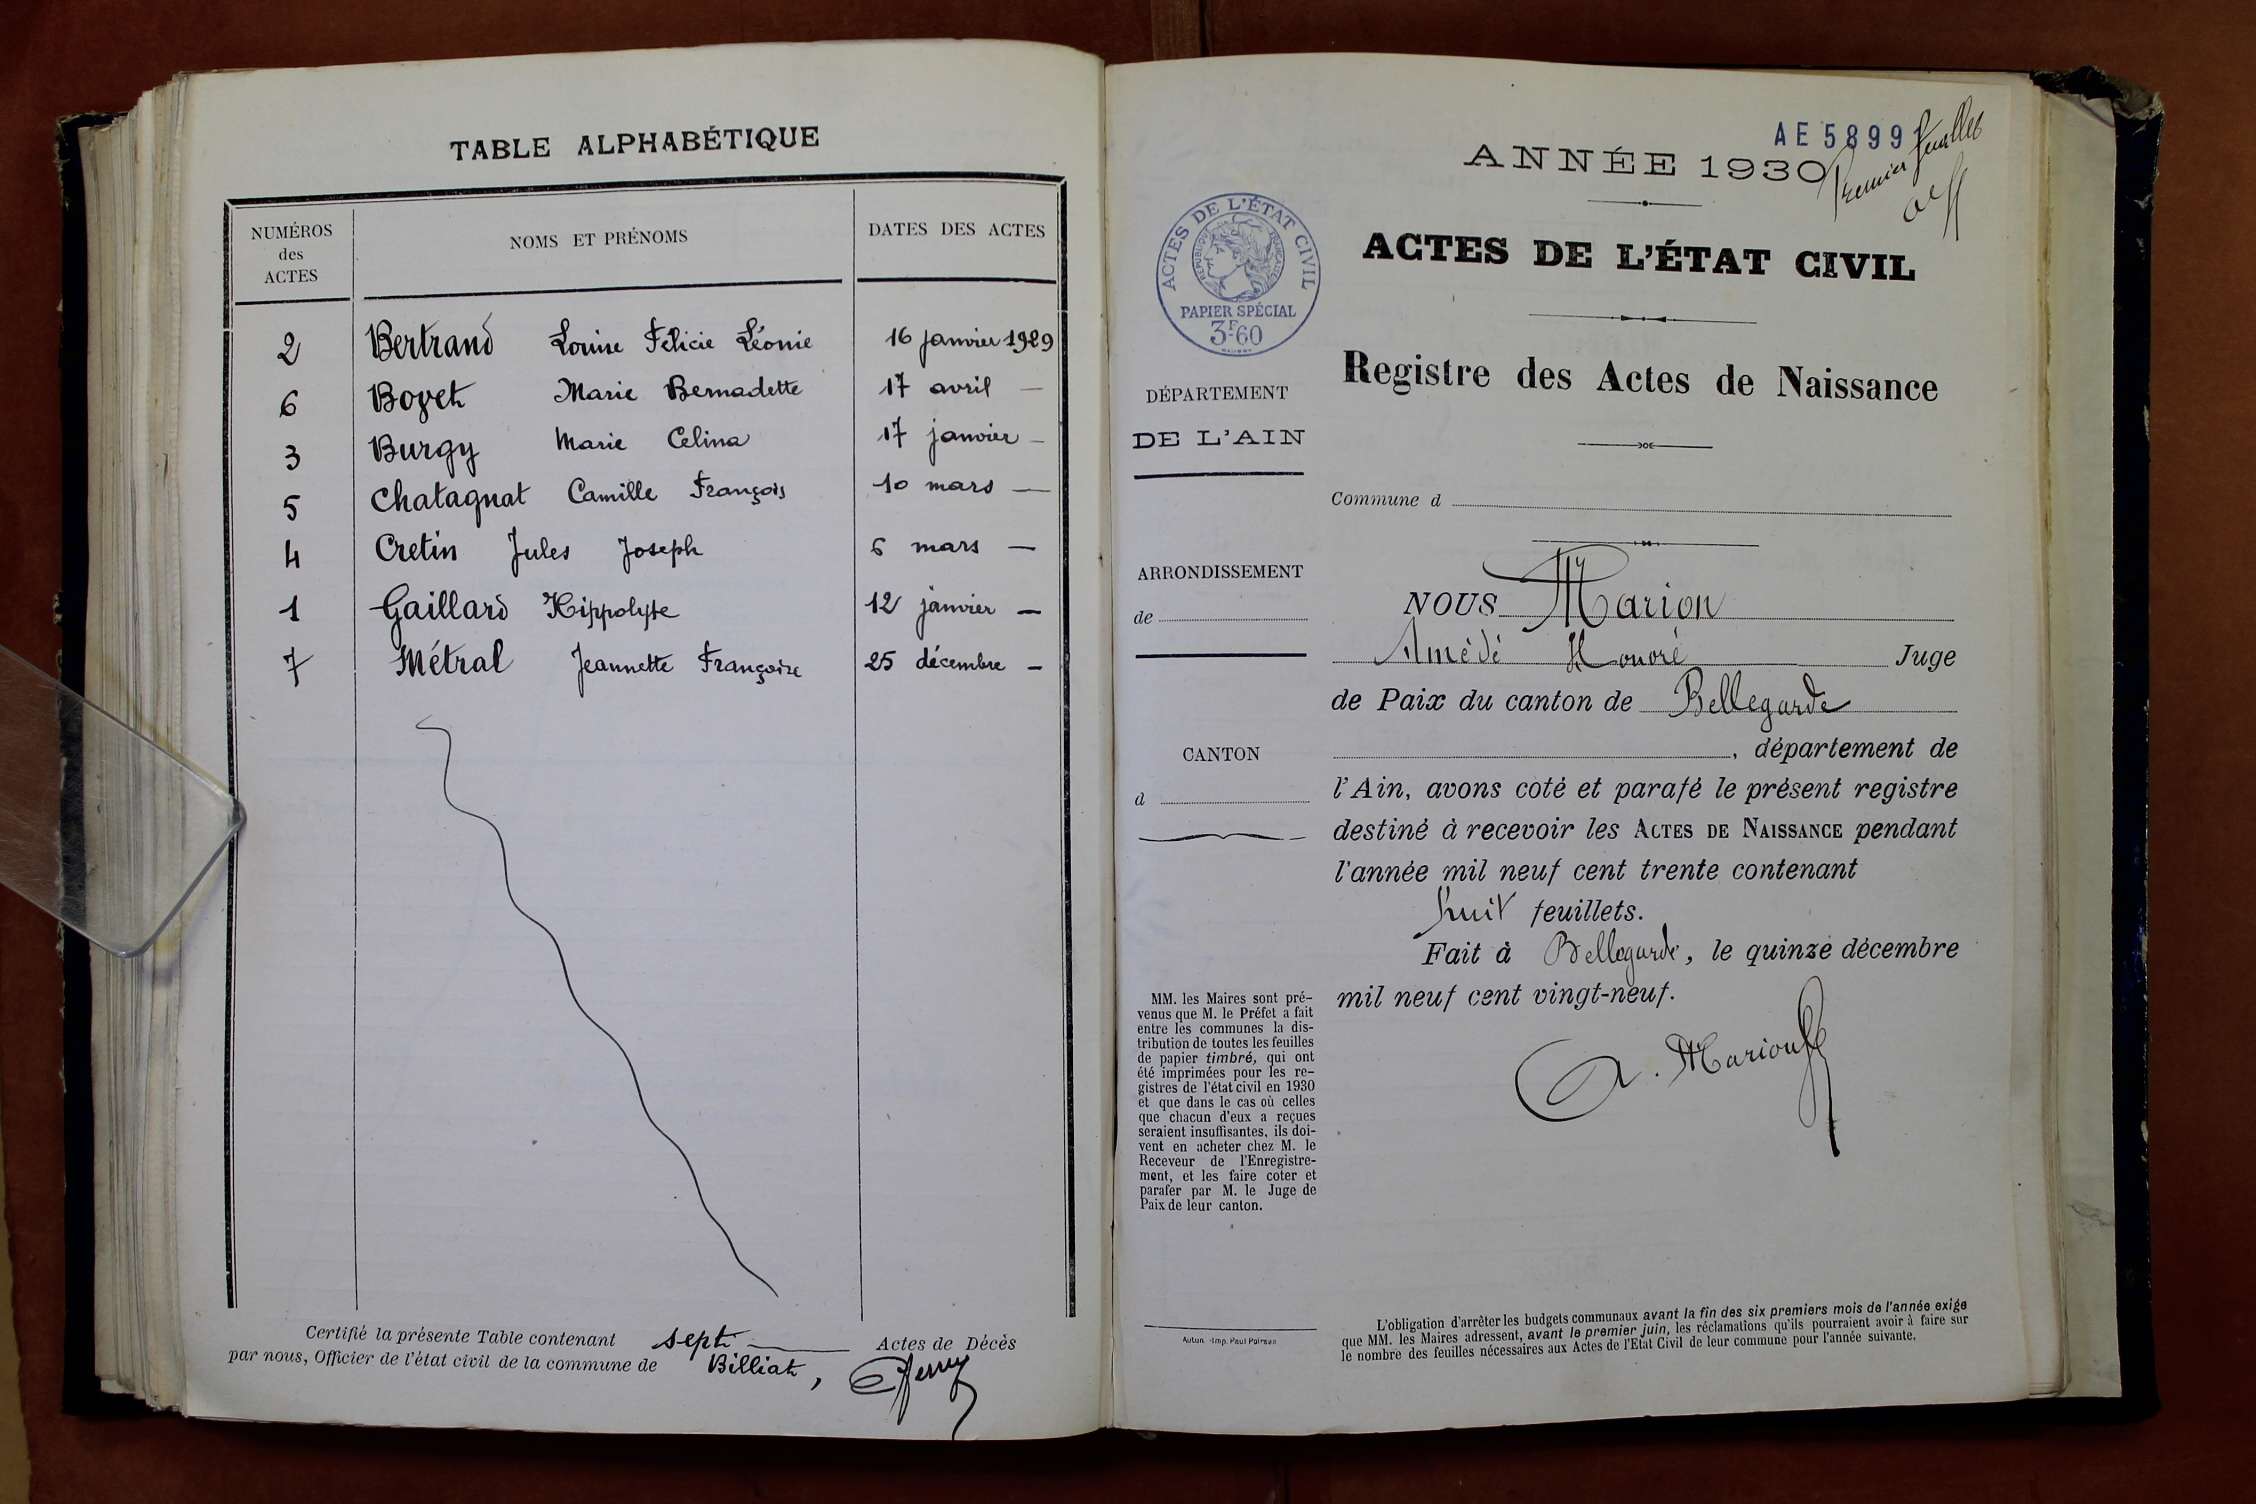 TABLE ALPHABÉTIQUE
NUMÉROS des ACTES
NOMS ET PRÉNOMS
DATES DES ACTES
2 Bertrand Louise Félicie Léonie 16 janvier 1929
6 Bovet Marie Bernadette 17 avril —
3 Burgy Marie Celina 17 janvier —
5 Chatagnat Camille François 10 mars —
4 Cretin Jules Joseph 6 mars —
1 Gaillard Hippolyte 12 janvier —
7 Métral Jeannette Françoise 25 décembre —
Certifié la présente Table contenant sept Actes de Décès
par nous, Officier de l'état civil de la commune de Billiat,
AE 5899
Premier feuillet
ANNÉE 1930
ACTES DE L'ÉTAT CIVIL
RÉPUBLIQUE FRANÇAISE
PAPIER SPÉCIAL
3F60
ACTES DE L'ÉTAT CIVIL
Registre des Actes de Naissance
DÉPARTEMENT
DE L'AIN
ARRONDISSEMENT
de
CANTON
d
MM. les Maires sont pré-
venus que M. le Préfet a fait
entre les communes la dis-
tribution de toutes les feuilles
de papier timbré, qui ont
été imprimées pour les re-
gistres de l'état civil en 1930
et que dans le cas où celles
que chacun d'eux a reçues
seraient insuffisantes, ils doi-
vent en acheter chez M. le
Receveur de l'Enregistre-
ment, et les faire coter et
parafer par M. le Juge de
Paix de leur canton.
Commune d
NOUS Marion
Amédé Honoré Juge
de Paix du canton de Bellegarde
, département de
l'Ain, avons coté et parafé le présent registre
destiné à recevoir les ACTES DE NAISSANCE pendant
l'année mil neuf cent trente contenant
huit feuillets.
Fait à Bellegarde, le quinze décembre
mil neuf cent vingt-neuf.
A. Marion
Autun. - Imp. Paul
L'obligation d'arrêter les budgets communaux avant la fin des six premiers mois de l'année exige
que MM. les Maires adressent, avant le premier juin, les réclamations qu'ils pourraient avoir à faire sur
le nombre des feuilles nécessaires aux Actes de l'Etat Civil de leur commune pour l'année suivante.